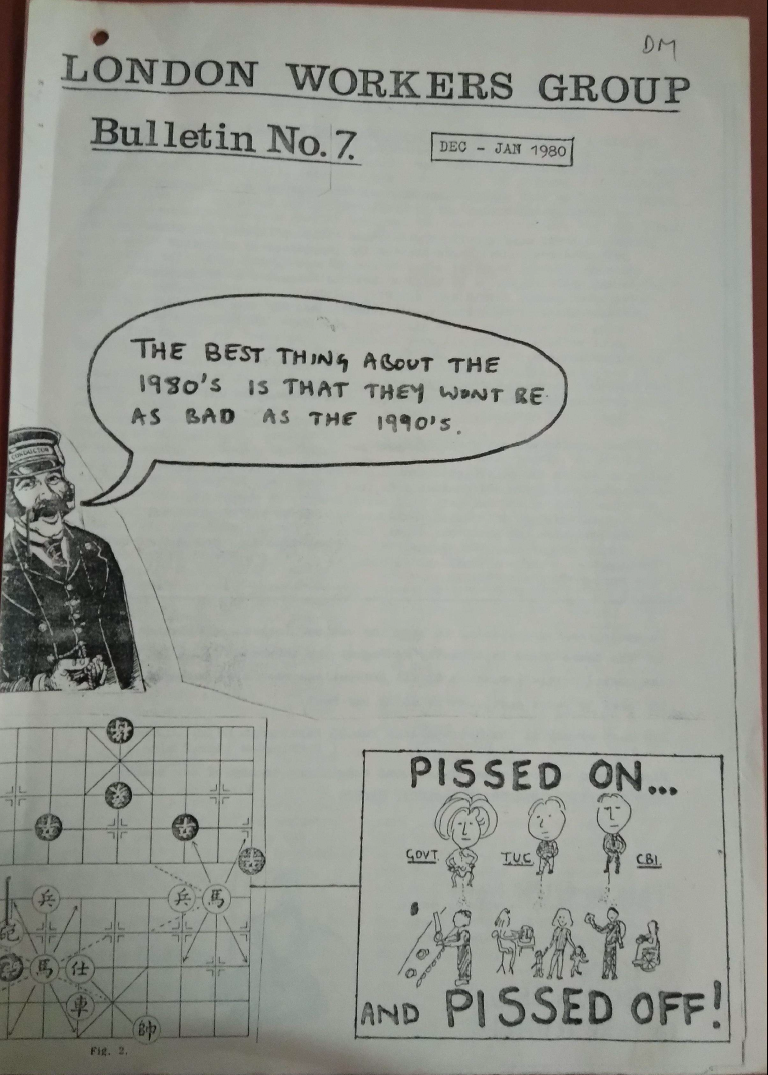 DM
LONDON WORKERS GROUP
Bulletin No. 7.
DEC - JAN 1980
THE BEST THING ABOUT THE
1980'S IS THAT THEY WONT BE
AS BAD AS THE 1990'S.
CONDUCTOR
兵
兵 馬
馬 仕
車
帥
Fig. 2.
PISSED ON...
GOVT. T.U.C. CBI.
AND PISSED OFF!